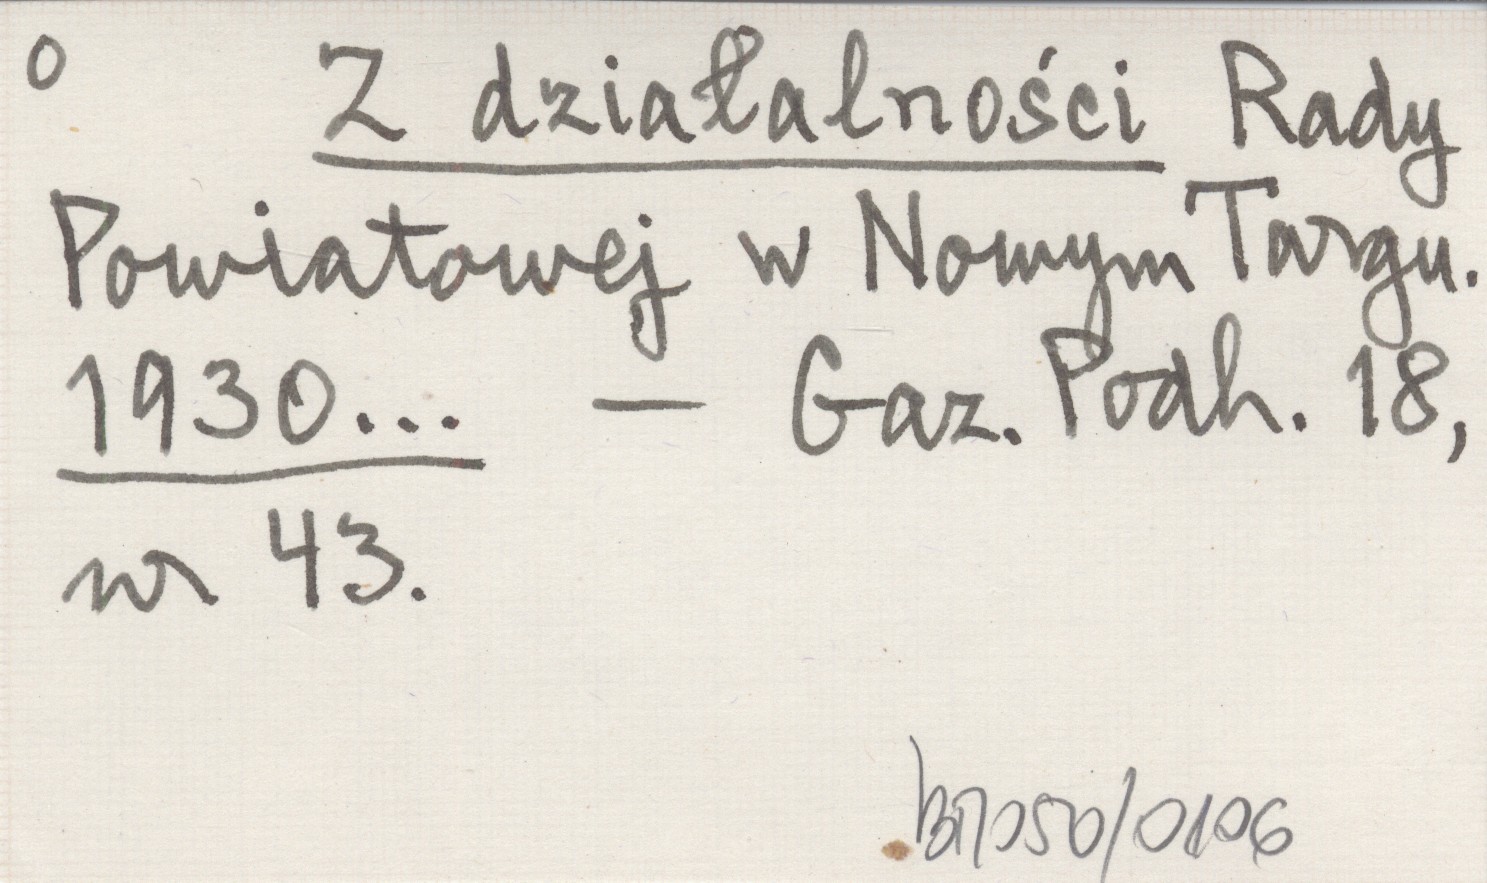 o Z działalności Rady
Powiatowej w Nowym Targu.
1930... — Gaz. Podh. 18,
nr 43.